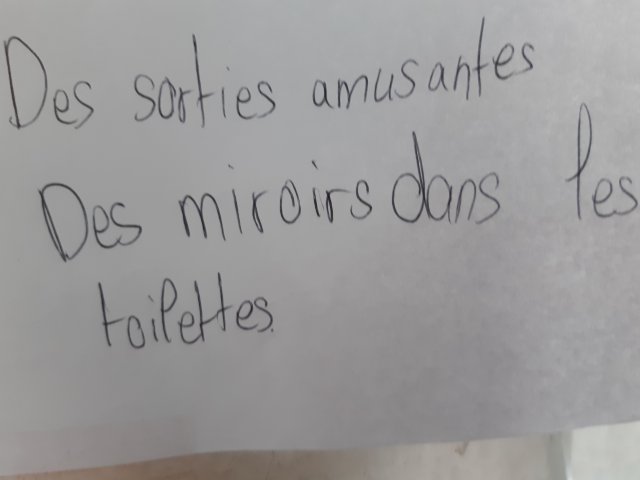 Des sorties amusantes
Des miroirs dans les
toilettes